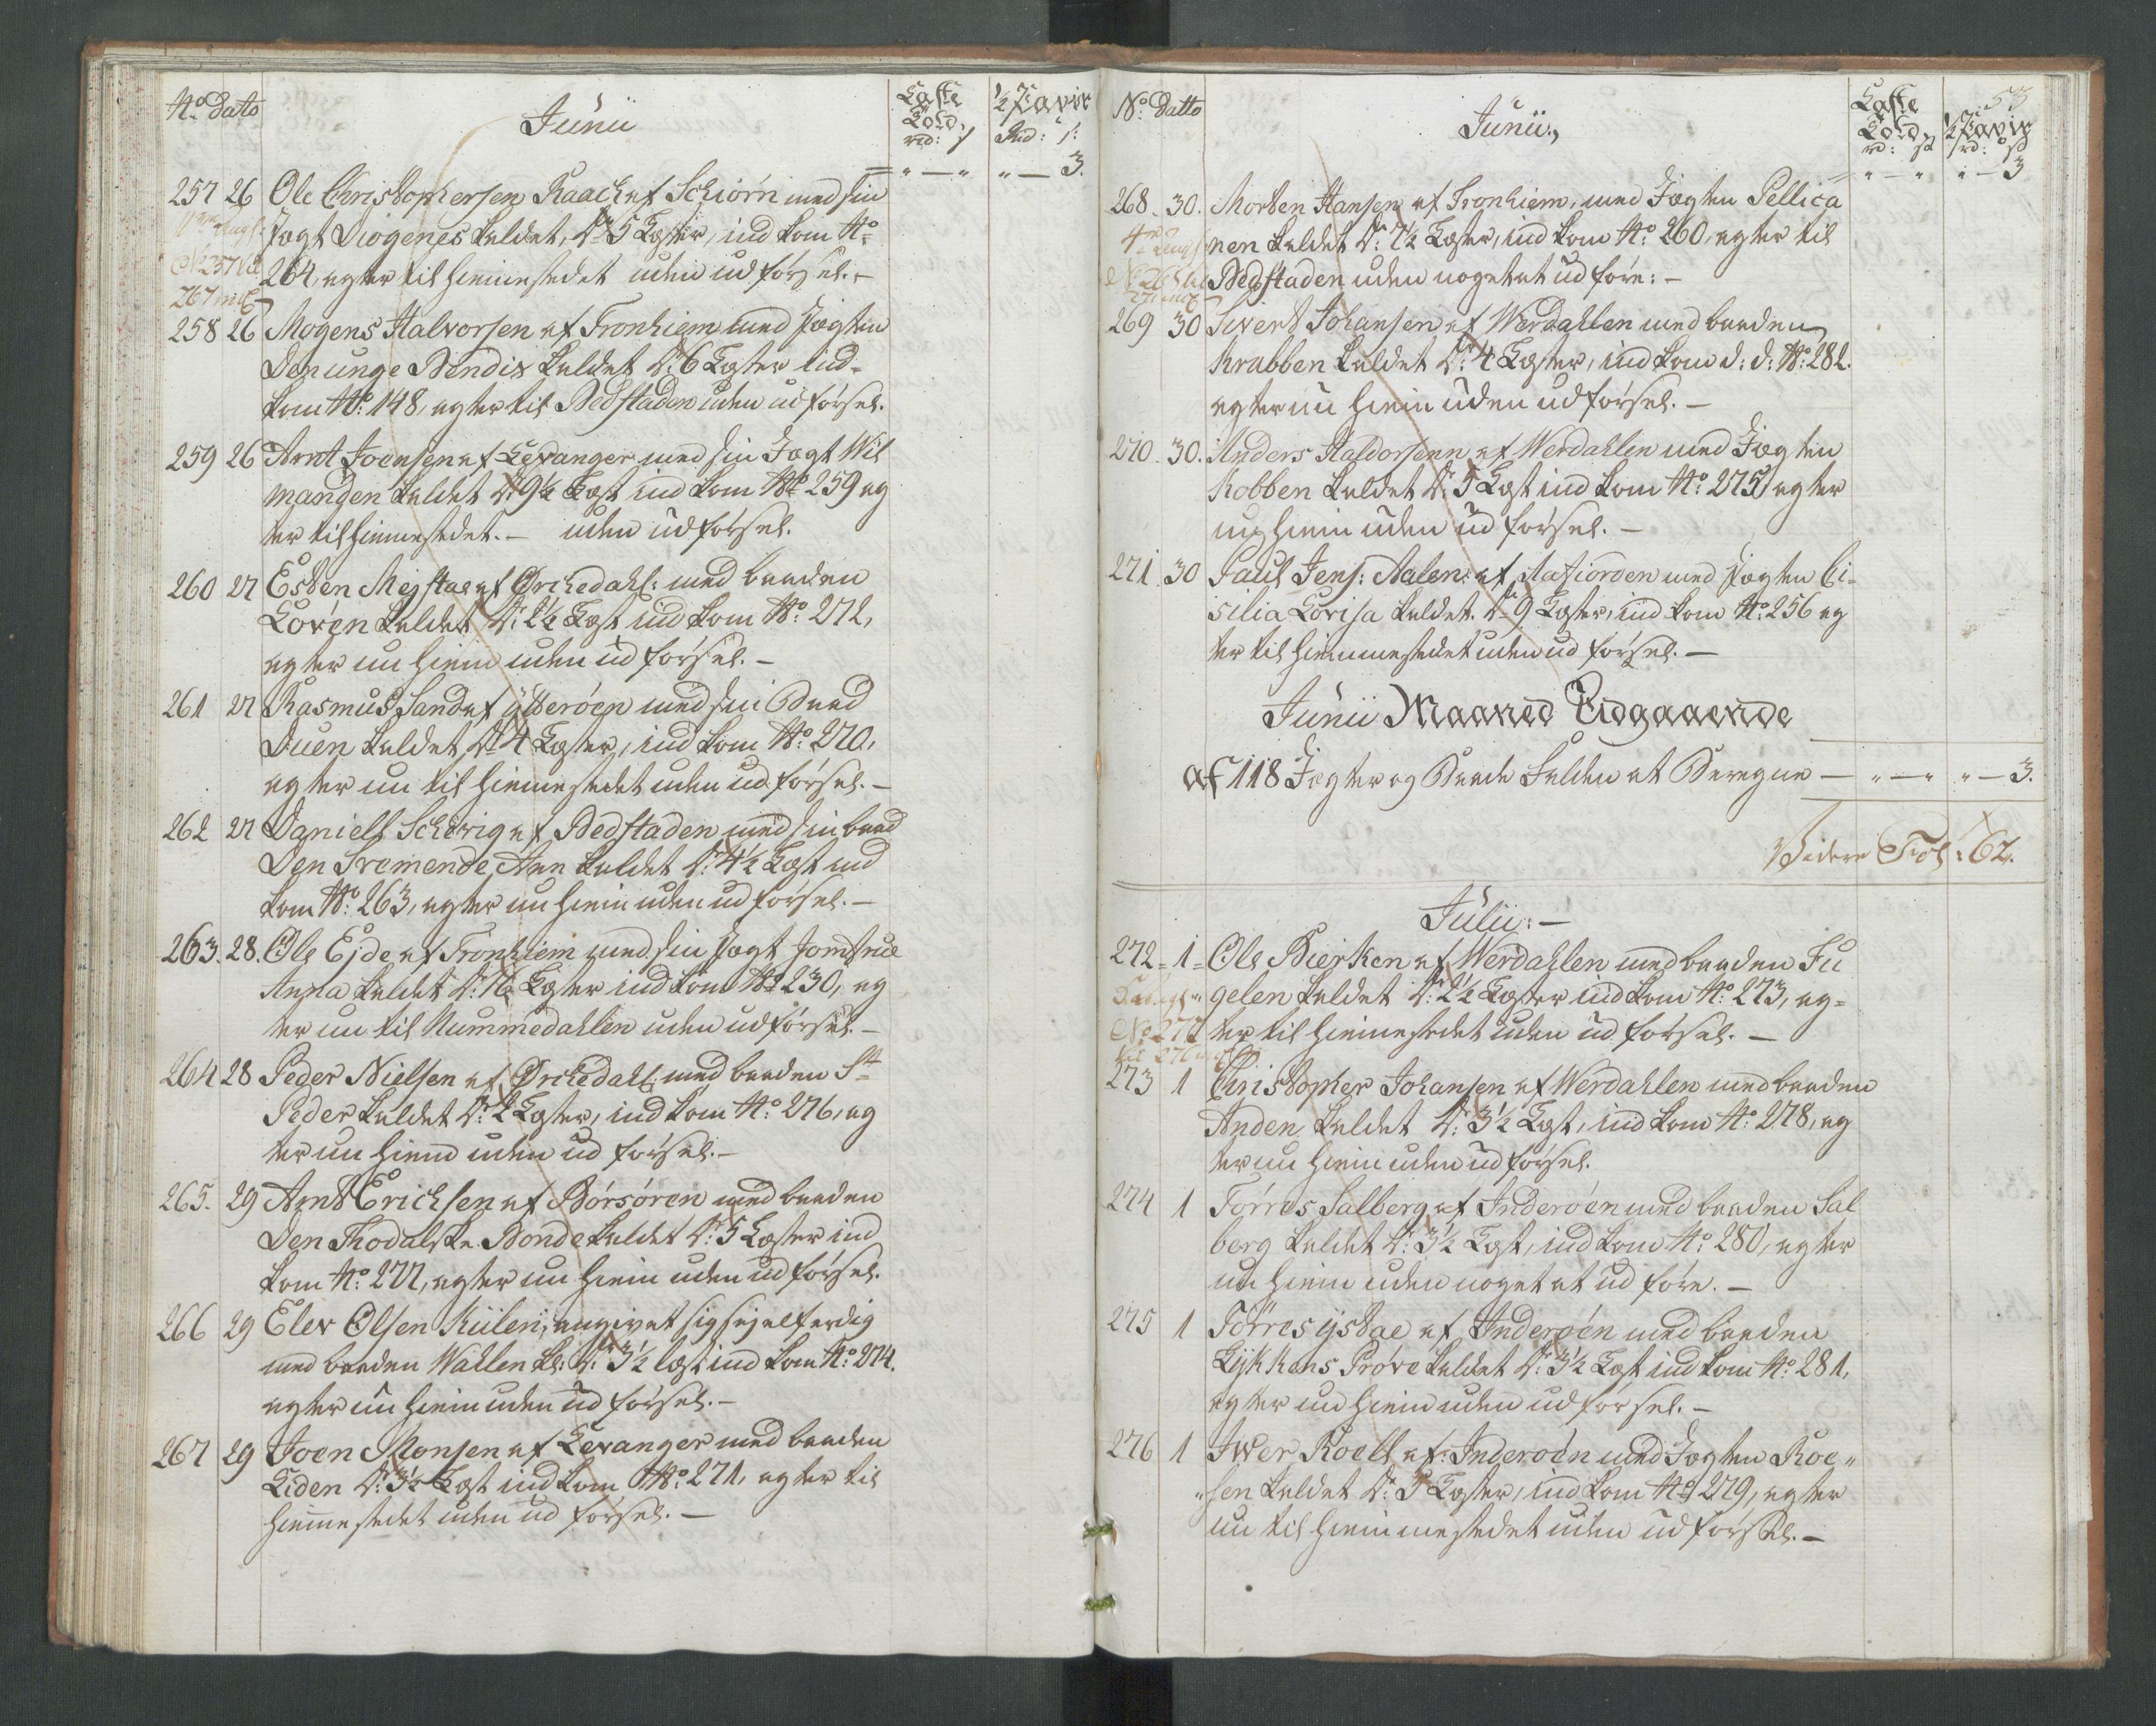 No Dato
Junii
Caffe Told rd: s
½ Tiavir Rd: s:
" — " " — 3.
257 26 Ole Christophersen Raach af Schiörn med sin
Jagt Diogenes kaldet, Dr: 5 Læster, ind kom No
264, agter til hiemmestedet uden udförsel. -
267
258 26 Mogens Halvorsen af Tronhiem med Jagten
Den unge Bendix kaldet Dr: 6 Læster ind-
kom No: 148, agter til Bedstaden uden udförsel.
259 26 Arnt Joensen af Levanger med sin Jagt Wil
manden kaldet Dr: 9½ Læst ind kom No 259 ag
ter til hiemmestedet. - uden udförsel.
260 27 Esten Mejstae af Örchedahl: med baaden
Lovén kaldet Dr: 2½ Læst ind kom No: 272,
agter nu hiem uden udförsel. -
261 27 Rasmus Sand af ÿtteröen med sin Baad
Duen kaldet Dr 4 Læster, ind kom No: 270,
agter nu til hiemmestedet uden udförsel. -
262 27 Daniell Scherig af Bedstaden med sin baad
Den Svemende Ann kaldet Dr: 4½ Læst ind
kom No: 263, agter nu hiem uden udförsel. -
263. 28. Ole Ejde af Tronhiem med sin Jagt Jomfrue
Anna kaldet Dr: 16 Læster ind kom No 230, ag
ter nu til Nummedahlen uden udförsel. -
264 28 Peder Nielsen af Örchedahl: med baaden St
Peder kaldet Dr: 2 Læster, ind kom No: 276, ag
ter nu hiem uden udförsel. -
265. 29 Arnt Erichsen af Börsören med baaden
Den Thodalske Bonde kaldet Dr: 5 Læster ind
kom No: 277, agter nu hiem uden udförsel.
266 29 Elev Olsen Küilen, angivet sig sejelferdig
med baaden Wahlen kl: Dr: 3½ læst ind kom No: 274.
agter nu hiem uden udförsel. -
267 29 Joen Monsen af Levanger med baaden
Liden Dr: 3½ Læst ind kom No: 271, agter til
hiemmestedet uden udförsel. -
53
No: Datto
Junii.,
Caffe Told rd: s
½ Tiavir rd: s
" — " " — 3
268. 30. Morten Hansen af Tronhiem, med Jagten Pellica
nen kaldet Dr: 7½ Læster, ind kom No: 260, agter til
Bedstaden uden noget at udföre: -
269 30 Sivert Johansen af Werdahlen med baaden
Krabben kaldet Dr: 4 Læster, ind kom d: d: No: 282.
agter nu hiem uden udförsel. -
270. 30. Anders Haldorsenn af Werdahlen med Jagten
Kobben kaldet Dr: 5 Læst ind kom No: 275, agter
nu hiem uden udförsel. -
271 30 Paul Jens: Aalen: af Aafiorden med Jagten Ci-
silia Lovisa kaldet. Dr 9 Læster, ind kom No: 256 ag
ter til hiemmestedet uden udförsel. -
Junii Maaned Udgaaende
af 118 Jagter og Baade falden at Beregne - " — " " — 3.
Videre Fol: 62.
Julii: -
272 - 1 - Ole Bierken af Werdahlen med baaden Fu
gelen kaldet Dr: 2½ Læster ind kom No: 273, ag-
ter til hiemmestedet uden udförsel. -
273 1 Christopher Johansen af Werdahlen med baaden
Anden kaldet Dr: 3½ Læst, ind kom No: 278, ag
ter nu hiem uden udförsel.
274 1 Törres Salberg af Inderöen med baaden Sal
berg kaldet Dr: 3½ Læst, ind kom No: 280, agter
nu hiem uden noget at udföre. -
275 1 Törres ÿstae af Inderöen med baaden
Lÿkkens Pröve kaldet Dr: 3½ Læst ind kom No: 281,
agter nu hiem uden udförsel. -
276 1 Iver Roell af Inderöen med Jagten Roe"
"sen kaldet Dr: 5 Læster, ind kom No 279, agter
nu til hiemmestedet uden udförsel. -